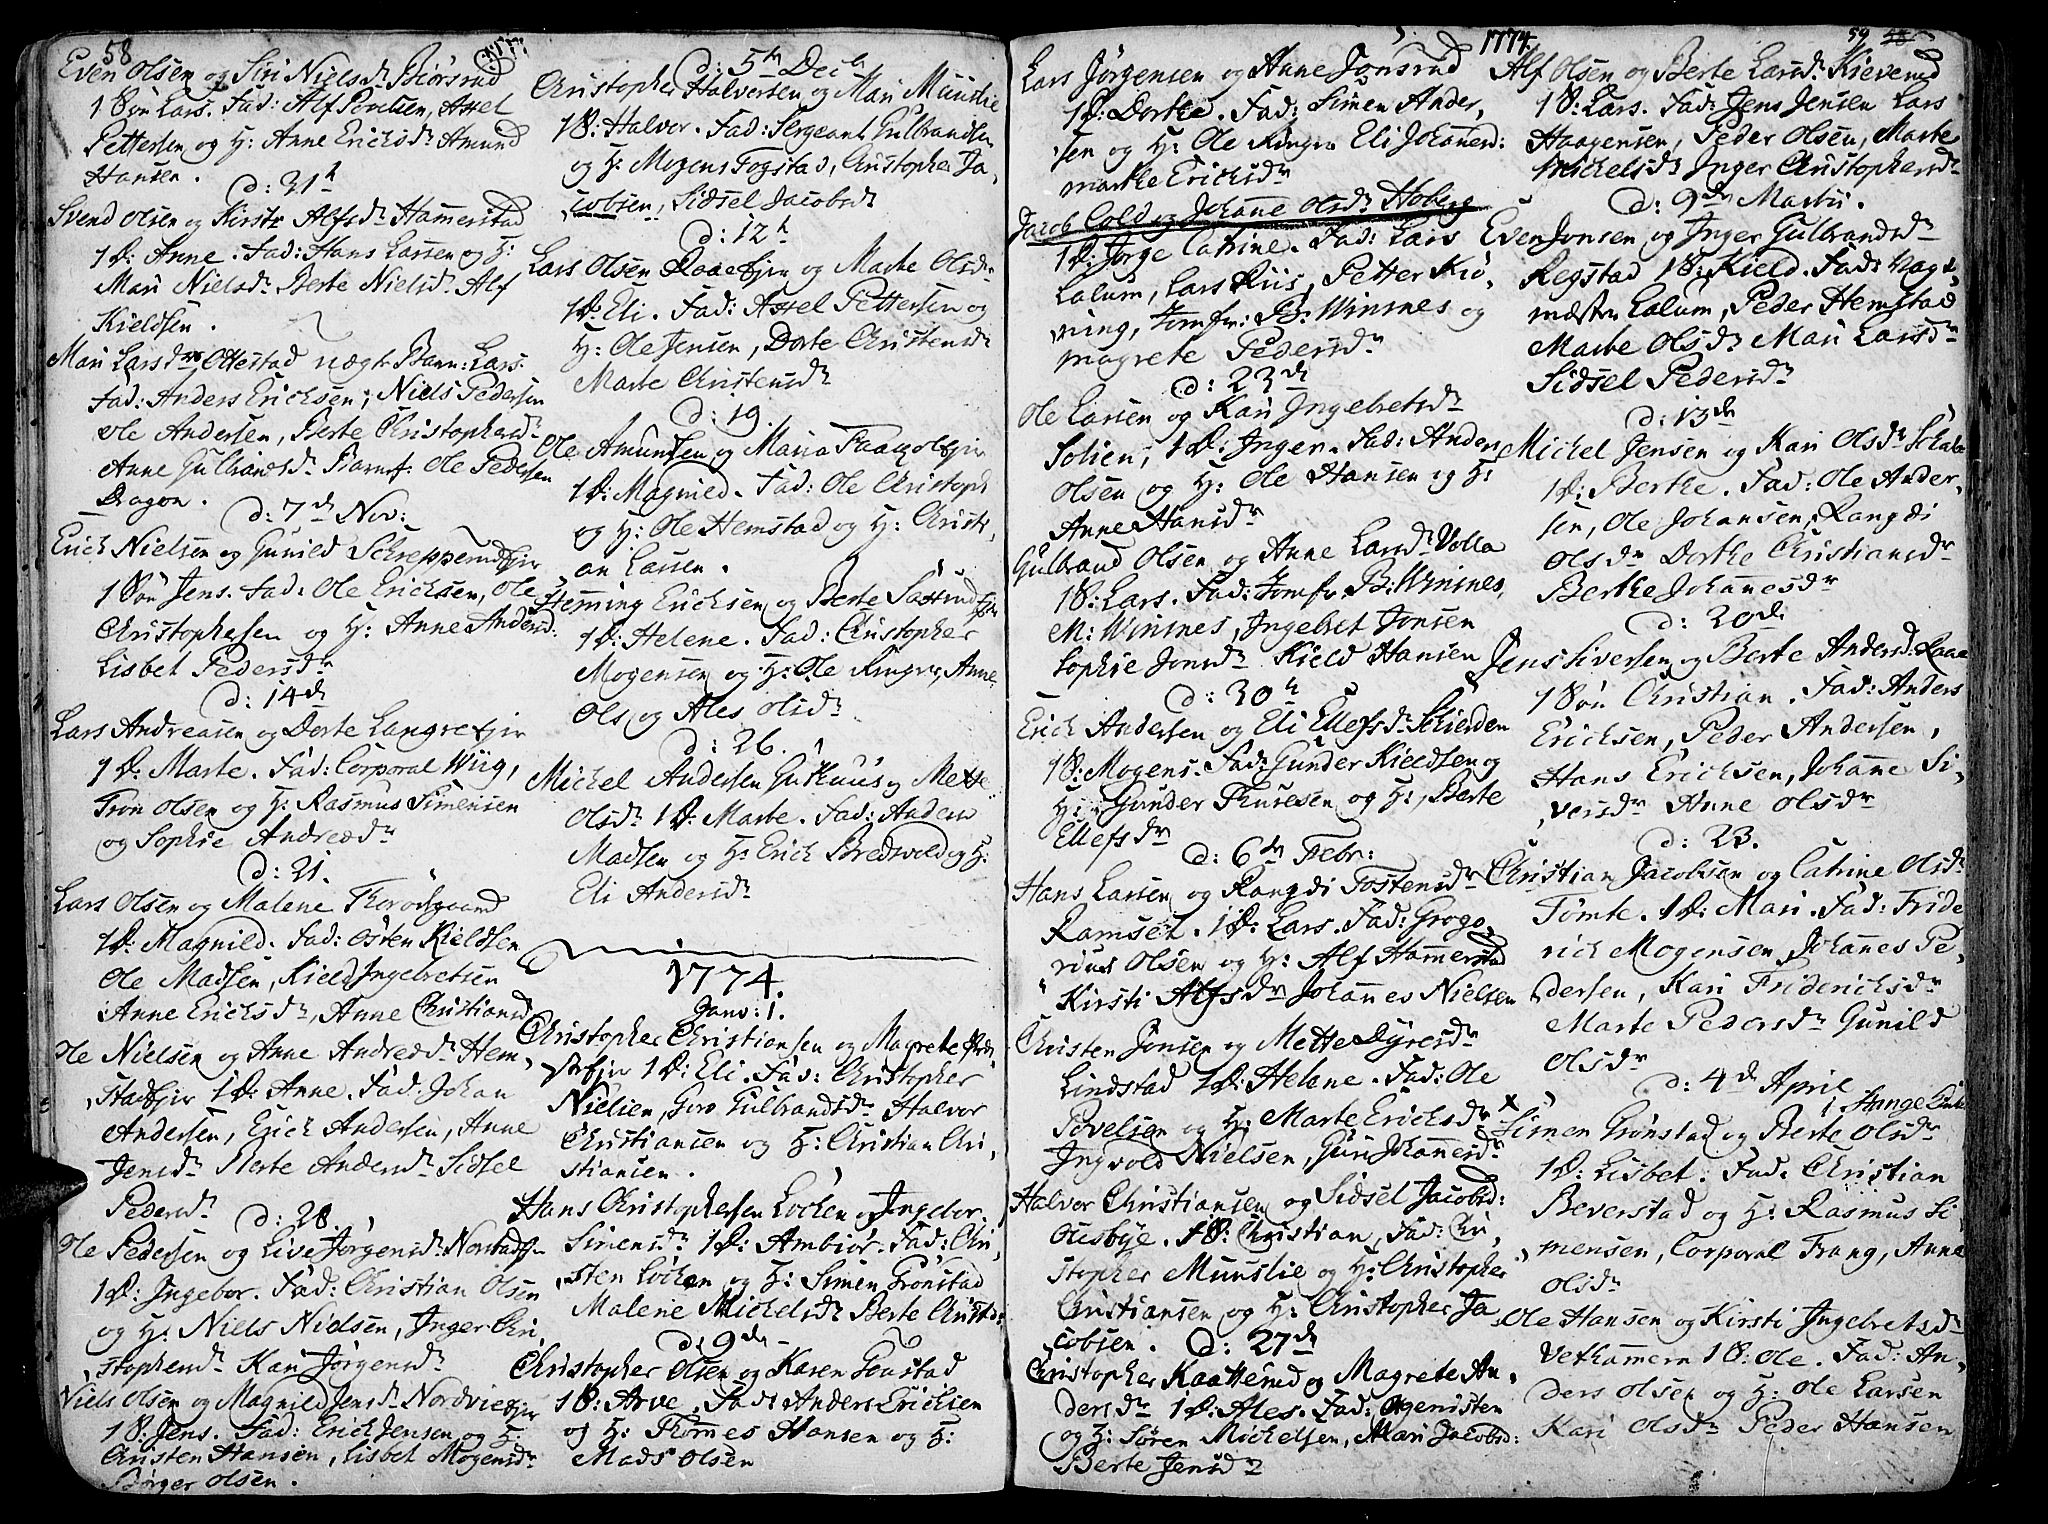 58
1773
Even Olsen og Siri Nielsdr Biörsrud
1 Sön Lars. Fad: Alf Povelsen, Axel
Pettersen og H: Anne Ericksdr Amund
Hansen.
d: 31h
Svend Olsen og Kirstr Alfsdr Hammerstad
1 D: Anne. Fad: Hans Larsen og H:
Mari Nielsdr Berte Nielsdr Alf
Kieldsen.
Mari Larsdr Ottestad uægte Barn: Lars.
Fad: Anders Ericksen, Niels Pedersen
Ole Andersen, Berte Christophersdr
Anne Gulbrandsdr Barnef. Ole Pedersen
Dragon.
d: 7de Nov:
Erich Nielsen og Gunild Schrepperudejer
1 Sön Jens. Fad: Ole Ericksen, Ole
Christophersen og H: Anne Andersd:
Lisbet Pedersdr
d: 14de
Lars Andreasen og Dorte Langreejer
1 D: Marte. Fad: Corporal Wiig,
Tron Olsen og H: Rasmus Simensen
og Sophie Andreædr
d: 21.
Lars Olsen og Malene Thorodsgaard
1 D: Magnild. Fad: Osten Kieldsen
Ole Madsen, Kield Ingelvretsen
Anne Ericksdr, Anne Christiansd
Ole Nielsen og Anne Andreædr Hem,
stadejer 1 D: Anne. Fad: Johan
Andersen, Erich Andersen, Anne
Jensdr Berte Andersdr Sidsel
Pedersdr
d: 28.
Ole Pedersen og Live Jörgensdr Norstadejer
1 D: Ingebor. Fad: Christian Olsen
og H: Niels Nielsen, Inger Chri,
stophersdr Kari Jörgensdr
Niels Olsen og Magnild Jensdr Nordvieejer
1 S: Jens. Fad: Erich Jensen og H:
Christen Hansen, Lisbet Mogensdr
Börger Olsen.
d: 5te Decbr
Christopher Halversen og Mari Muuslie
1 S: Halvor. Fad: Sergeant Gulbrandsen
og H: Mogens Fogstad, Christopher Ja,
cobsen, Sidsel Jacobsdr
d: 12h
Lars Olsen Raaeejer og Marte Olsdr
1 D: Eli. Fad: Axel Pettersen og
H: Ole Jensen, Dorte Christensdr
Marte Christensdr
d: 19.
Ole Amundsen og Maria
1 D: Magnild. Fad: Ole Christoph
og H: Ole Hemstad og H: Christi,
an Larsen.
Hemming Ericksen og Berte Sastrudejer
1 D: Helene. Fad: Christopher
Mogensen og H: Ole Ringer, Anne
Ols og Ales Olsdr
d: 26.
Michel Andersen Guthuus og Mette
Olsdr 1 D: Marte. Fad: Anders
Madsen og H: Erich Bredvold og H:
Eli Andersdr
1774.
Janv: 1.
Christopher Christiansen og Magrete
1 D: Eli. Fad: Christopher
Nielsen, Goro Gulbrandsdr Halvor
Christiansen og H: Christian Chri,
stiansen.
Hans Christophersen Locken og Ingebor
Simensdr 1 D: Ambiör. Fad: Chri,
sten Locken og H: Simen Grönstad
Malene Michelsdr Berte Christd:
d: 9de
Christopher Olsen og Karen Gonstad
1 S: Arve. Fad: Anders Ericksen
og H: Thomes Hansen og H:
Mads Olsen
1774.
59
Lars Jörgensen og Anne Jonsrud
1 D: Dorthe. Fad: Simen Ander,
sen og H: Ole Ringer Eli Johannesd:
Marthe Ericksdr
Jacob Cold og Johanne Olsdr Hoberg
1 D: Jörge Catrine. Fad: Lars
Lalum, Lars Riis, Petter Kiö,
ning, Jomfr: B: Winsnes og
Magrete Pedersdr
d: 23de
Ole Larsen og Kari Ingelvretsdr
Solien, 1 D: Inger. Fad: Anders
Olsen og H: Ole Hansen og H:
Anne Hansdr
Gulbrand Olsen og Anne Larsdr Volla
1 S: Lars. Fad: Jomfr B: Winsnes,
M: Winsnes, Ingebret Jonsen
Sophie Jonsdr Kield Hansen
d: 30h
Erich Andersen og Eli Ellefsdr Schierden
1 S: Mogens. Fad: Gunder Kieldsen og
H: Gunder Thuresen og H:, Berte
Ellefsdr
d: 6te Febr:
Hans Larsen og Rangdi Tostensdr
Ramset. 1 D: Lars. Fad: Grego,
rius Olsen og H: Alf Hammerstad
Kirsti Alfsdr Johannes Nielsen
Christen Jonsen og Mette Dyresdr
Lindstad 1 D: Helene. Fad: Ole
Povelsen og H: Marte Ericksdr
Ingvold Nielsen, Guri Johannesdr
Halvor Christiansen og Sidsel Jacobsd:
Ousbye. 1 S: Christian, Fad: Chri,
stopher Muuslie og H: Christopher
Christiansen og H: Christopher Ja
cobsen. d: 27de
Christopher Kaatterud og Magrete An,
dersdr 1 D: Ales. Fad: Ogenisten
og H: Sören Michelsen, Mari Jacobsd:
Berte Jensdr
Alf Olsen og Berte Larsdr Kieverud
1 S: Lars. Fad: Jens Jensen Lars
Haagensen, Peder Olsen, Marte
Michelsdr Inger Christophersdr
d: 9de Martii.
Even Jonsen og Inger Gulbrandsdr
Regstad 1 S: Kield. Fad: Vagt,
mæster Lalum, Peder Hemstad
Marte Olsdr Mari Larsdr
Sidsel Pedersdr
d: 13de
Michel Jensen og Kari Olsdr
1 D: Berthe. Fad: Ole Ander,
sen, Ole Johansen, Rangdi
Olsdr Dorthe Christiansdr
Berthe Johannesdr
d: 20de
Jens Siversen og Berte Andersd. Raae
1 Sön Christian. Fad: Anders
Ericksen, Peder Andersen,
Hans Ericksen, Johanne Si,
versdr Anne Olsdr
d: 23.
Christian Jacobsen og Catrine Olsdr
Tömte. 1 D: Mari. Fad: Fride
rich Mogensen, Johannes Pe,
dersen, Kari Friderichsdr
Marte Pedersdr Gunild
Olsdr
d: 4de April
i Stange Kirke
x Simen Grönstad og Berte Olsdr
1 D: Lisbet. Fad: Christian
Beverstad og H: Rasmus Si,
mensen, Corporal Frang, Anne
Olsdr
Ole Hansen og Kirsti Ingelvretsdr
Vethammern 1 S: Ole. Fad: An,
ders Olsen og H: Ole Larsen
Kari Olsdr Peder Hansen